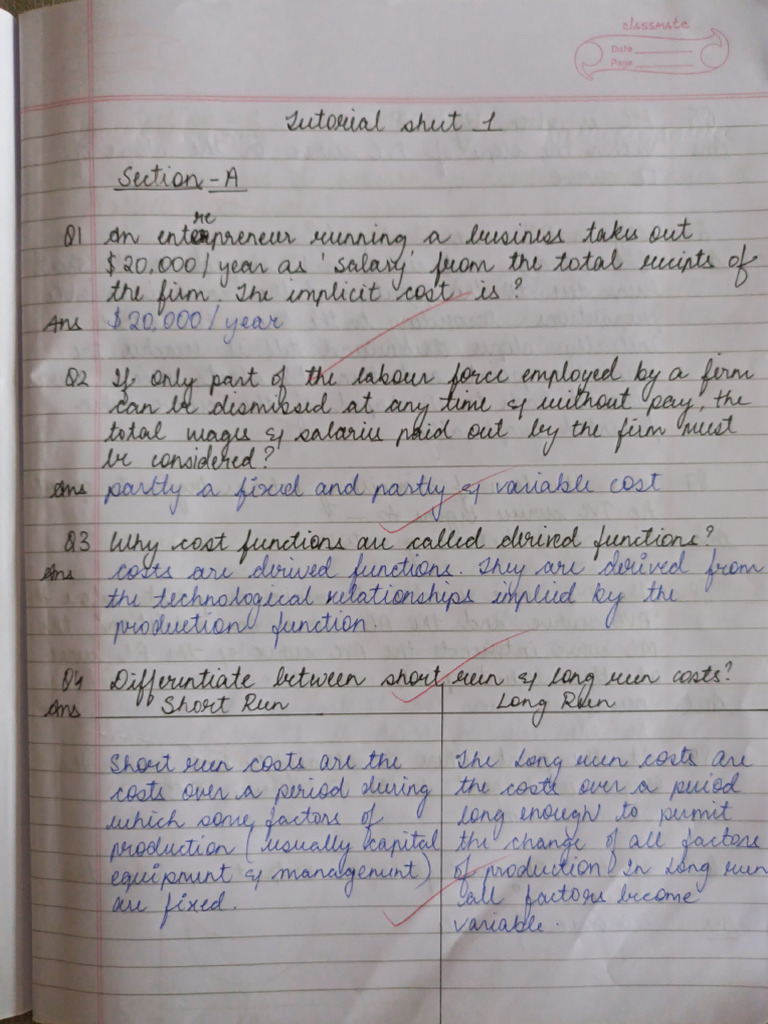 classmate
Date
Page
Tutorial sheet 1
Section - A
Q1 An entrepreneur running a business takes out
$20,000/year as 'salary' from the total recipts of
the firm. The implicit cost is?
Ans $20,000/year
Q2 If only part of the labour force employed by a firm
can be dismissed at any time & without pay, the
total wages & salaries paid out by the firm must
be considered?
Ans partly a fixed and partly & variable cost
Q3 Why cost functions are called derived functions?
Ans costs are derived functions. They are derived from
the technological relationships implied by the
production function.
Q4 Differentiate between short run & long run costs?
Ans Short Run Long Run
Short run costs are the
costs over a period during
which some factors of
production (usually capital
equipment & management)
are fixed.
The Long run costs are
the costs over a period
long enough to permit
the change of all factors
of production. In Long run
all factors become
variable.